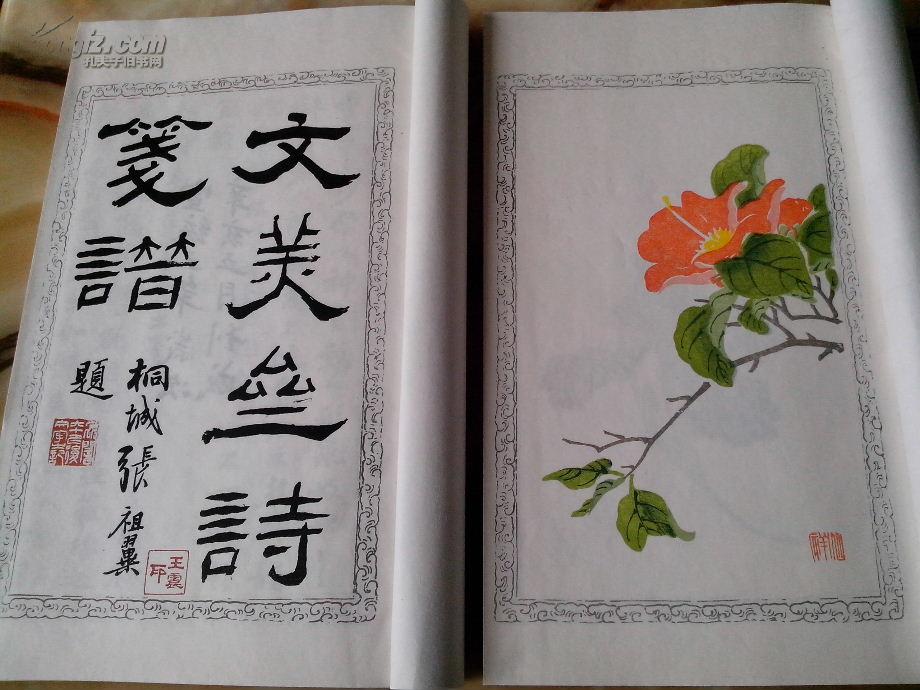 kongfz.com
孔夫子旧书网
文美亝詩
箋譜
桐城張祖翼
題
王雲
印